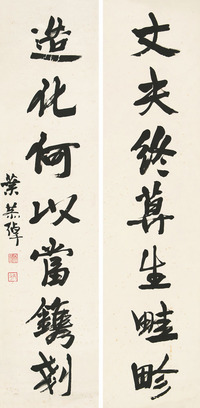 丈夫終莫生畦畛
造化何以當鐫刻
葉恭綽